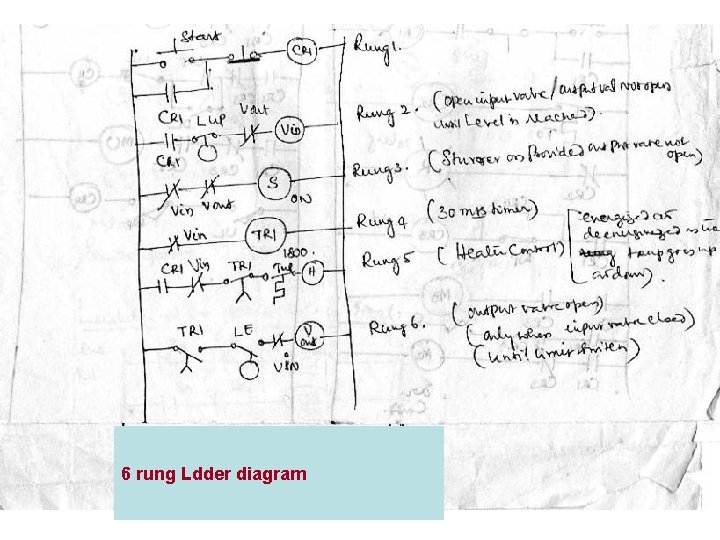 Start
CR1
Rung 1.
CR1 LUP Vout
Vin
Rung 2. (open input valve / output val not open
until Level is reached).
CR1
S
Rung 3. (Sturrer on provided output valve not
open)
Vin Vout ON
Vin
TR1
Rung 4 (30 min timer)
energized at
CR1 Vin TR1 1800.
H
Rung 5 (Heater Control)
temp goes up
TR1 LE
V
out
Vin
Rung 6. (output valve open)
(only when input valve closed)
(until limit
6 rung Ldder diagram